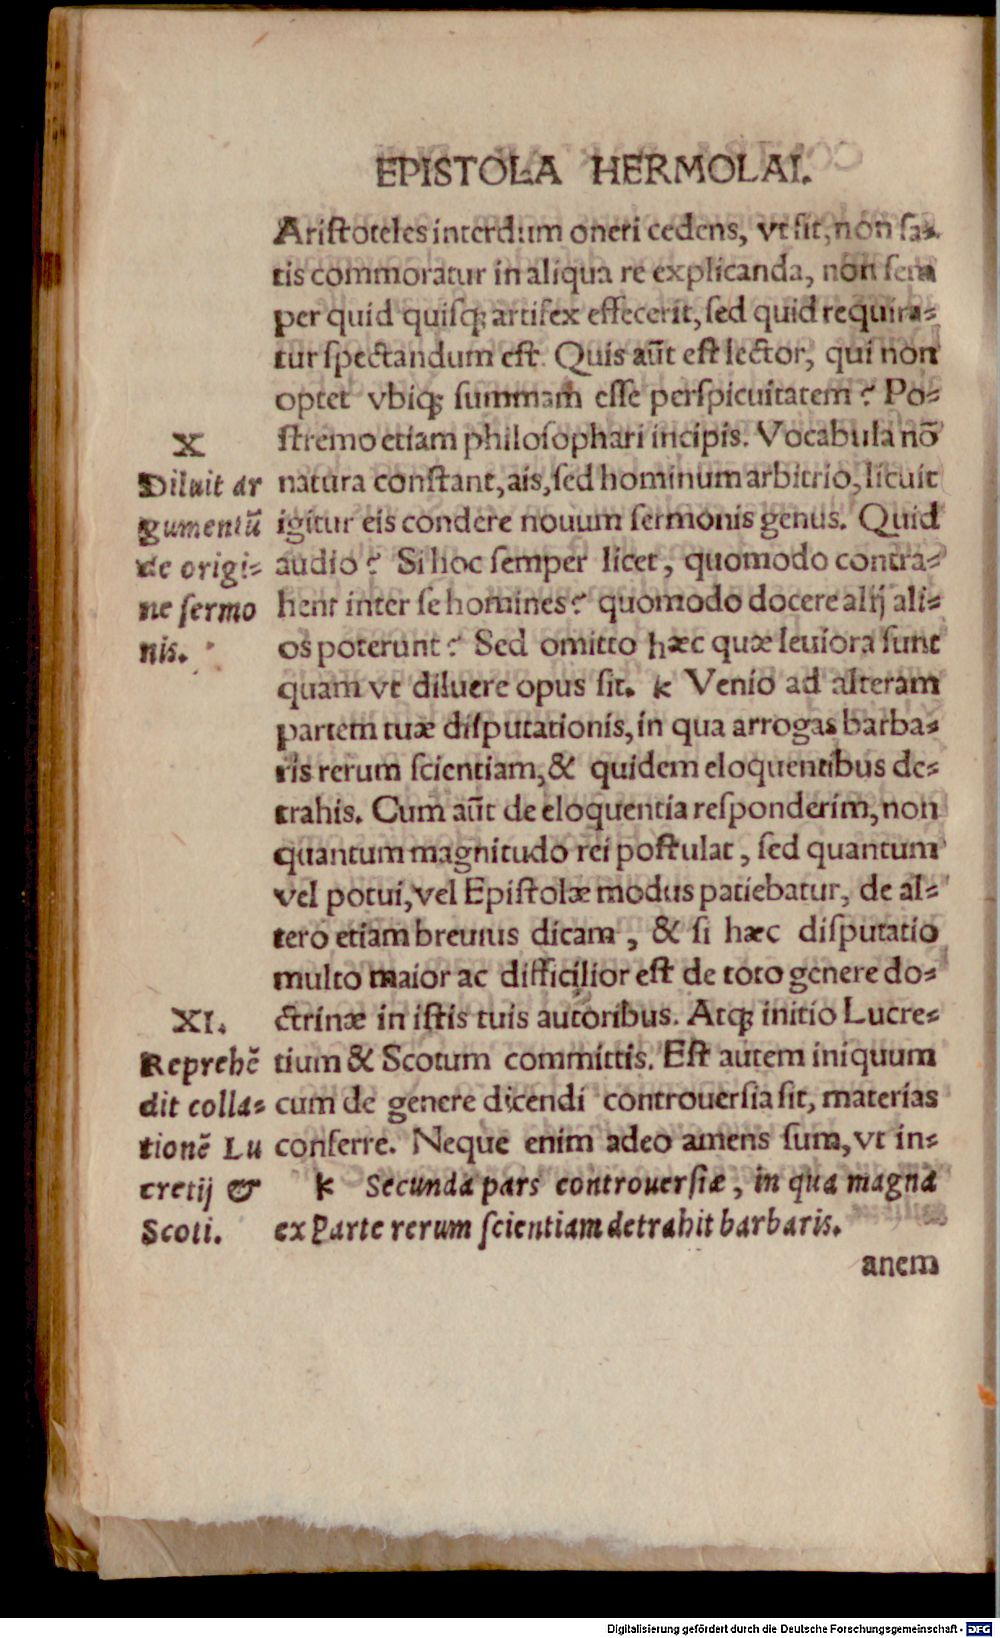 EPISTOLA HERMOLAI.
Aristoteles interdum oneri cedens, vt fit, non sa-
tis commoratur in aliqua re explicanda, non sem
per quid quisq; artifex effecerit, sed quid requira-
tur spectandum est. Quis aūt est lector, qui non
optet vbiq; summam esse perspicuitatem? Po-
stremo etiam philosophari incipis. Vocabula nō
natura constant, ais, sed hominum arbitrio, licuit
igitur eis condere nouum sermonis genus. Quid
audio? Si hoc semper licet, quomodo contra-
hent inter se homines? quomodo docere alij ali-
os poterunt? Sed omitto hæc quæ leuiora sunt
quam vt diluere opus sit. k Venio ad alteram
partem tuæ disputationis, in qua arrogas barba-
ris rerum scientiam, & quidem eloquentibus de-
trahis. Cum aūt de eloquentia responderim, non
quantum magnitudo rei postulat, sed quantum
vel potui, vel Epistolæ modus patiebatur, de al-
tero etiam breuius dicam, & si hæc disputatio
multo maior ac difficilior est de toto genere do-
ctrinæ in istis tuis autoribus. Atq; initio Lucre-
tium & Scotum committis. Est autem iniquum
cum de genere dicendi controuersia sit, materias
conferre. Neque enim adeo amens sum, vt in-
k Secunda pars controuersiæ, in qua magna
ex Parte rerum scientiam detrahit barbaris.
anem
X
Diluit ar
gumentū
de origi-
ne sermo
nis.
XI.
Reprehē
dit colla-
tionē Lu
cretij &
Scoti.
Digitalisierung gefördert durch die Deutsche Forschungsgemeinschaft - DFG